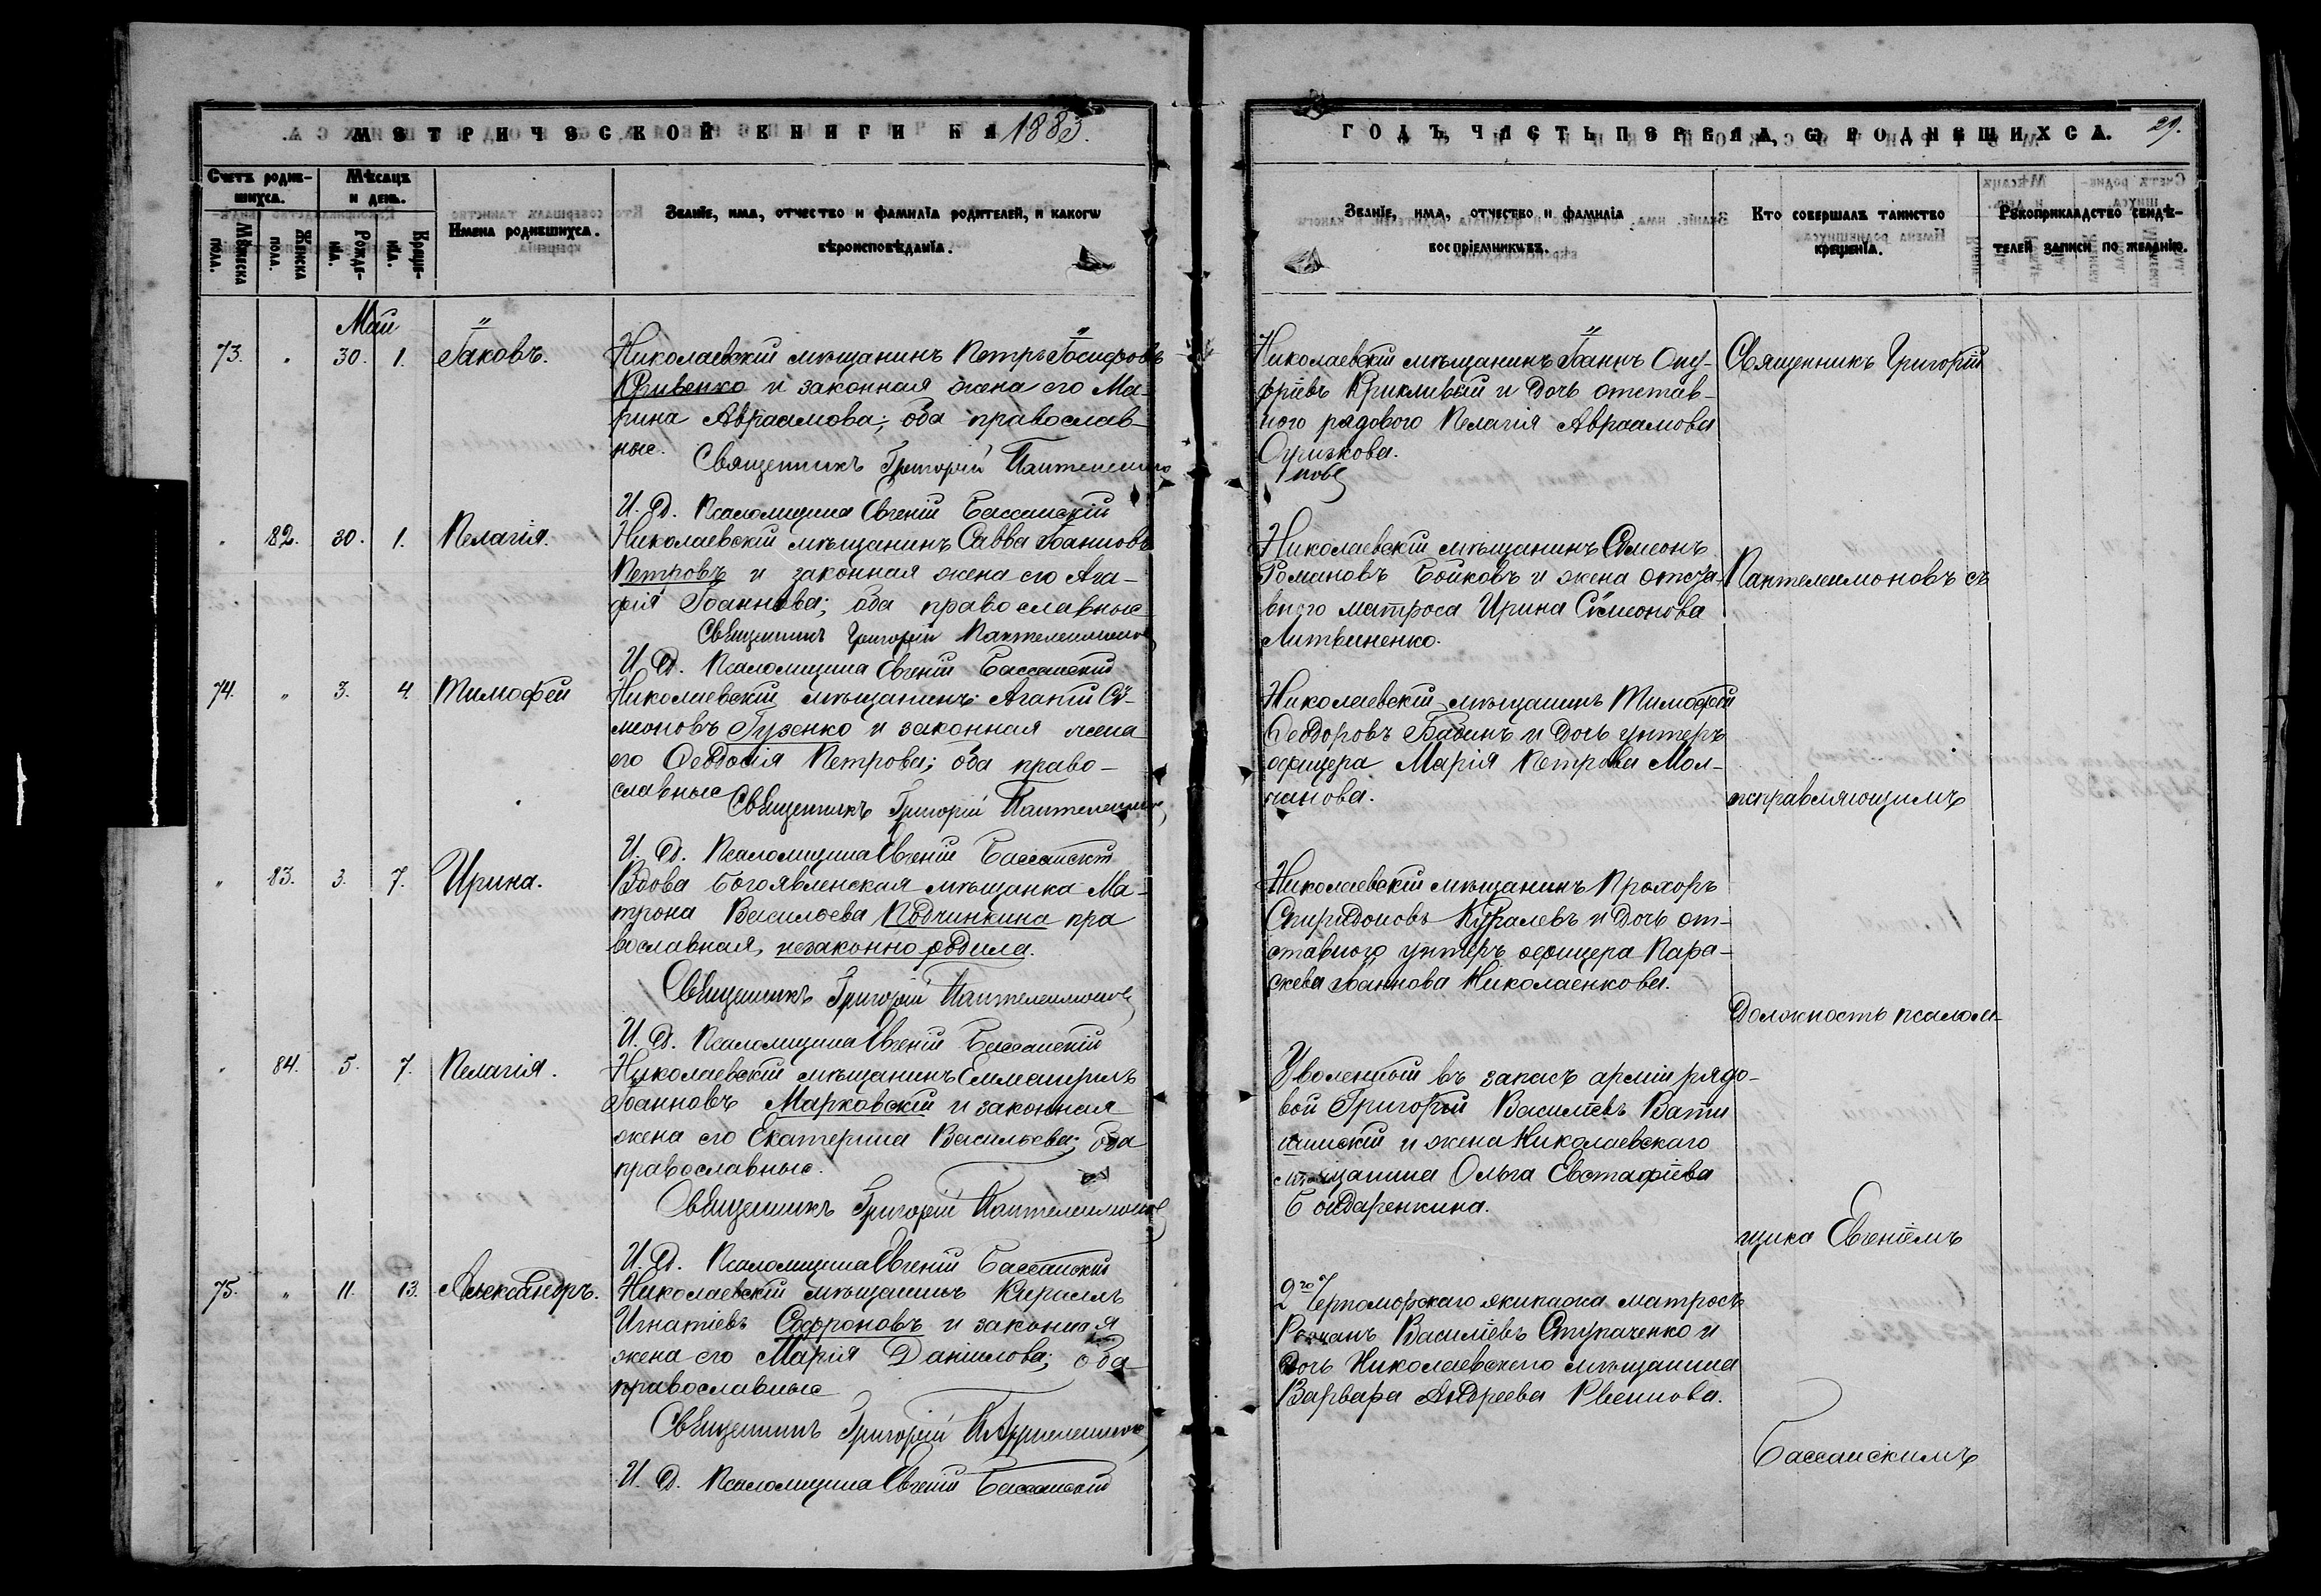 МЕТРИЧЕСКОЙ КНИГИ НА 1883.
Счетъ родив-
шихся.
Мѣсяцъ
и день.
Мужеска
пола.
Женска
пола.
Рожде-
нія.
Креще-
нія.
Имена родившихся.
Званіе, имя, отчество и фамилія родителей, и какого
вѣроисповѣданія.
Май
73. " 30. 1. Іаковъ.
Николаевскій мѣщанинъ Петръ Іосифовъ
Кривенко и законная жена его Ма-
рина Авраамова; оба православ-
ные.
Священникъ Григорій Пантелеимоновъ
И. Д. Псаломщика Евгеній Бассанскій
" 82. 30. 1. Пелагія.
Николаевскій мѣщанинъ Савва Іоанновъ
Петровъ и законная жена его Ага-
фія Іоаннова; оба православные
Священникъ Григорій Пантелеимоновъ
И. Д. Псаломщика Евгеній Бассанскій
74. " 3. 4. Тимофей
Николаевскій мѣщанинъ Агапій Сѵ-
меоновъ Гузенко и законная жена
его Ѳеодосія Петрова; оба право-
славные
Священникъ Григорій Пантелеимоновъ
И. Д. Псаломщика Евгеній Бассанскій
" 83. 3. 7. Ирина.
Вдова Богоявленская мѣщанка Ма-
трона Васильева Подчинкина пра
вославная, незаконно родила.
Священникъ Григорій Пантелеимоновъ
И. Д. Псаломщика Евгеній Бассанскій
" 84. 5. 7. Пелагія.
Николаевскій мѣщанинъ Еммануилъ
Іоанновъ Марковскій и законная
жена его Екатерина Васильева; оба
православные.
Священникъ Григорій Пантелеимоновъ
И. Д. Псаломщика Евгеній Бассанскій
75. " 11. 13. Александръ.
Николаевскій мѣщанинъ Кириллъ
Игнатіевъ Софроновъ и законная
жена его Марія Даніилова; оба
православные
Священникъ Григорій Пантелеимоновъ
И. Д. Псаломщика Евгеній Бассанскій
ГОДЪ, ЧАСТЬ ПЕРВАЯ, Ѡ РОДИВШИХСЯ. 29.
Званіе, имя, отчество и фамилія
воспріемниковъ.
Кто совершалъ таинство
крещенія.
Рукоприкладство свидѣ-
телей записи по желанію.
Николаевскій мѣщанинъ Іоаннъ Ону-
фріевъ Крикливый и дочь отстав-
ного рядового Пелагія Авраамова
Николаевскій мѣщанинъ Сѵмеонъ
Романовъ Бойковъ и жена отста-
вного матроса Ирина Сѵмеонова
Литвиненко.
Николаевскій мѣщанинъ Тимофей
Ѳеодоровъ Бабинъ и дочь унтеръ
офицера Марія Петрова Мол-
чанова.
Николаевскій мѣщанинъ Прохоръ
Спиридоновъ и дочь от-
ставного унтеръ офицера Пара-
скева Іоаннова Николаенкова.
Уволенный въ запасъ арміи рядо-
вой Григорій Василіевъ
и жена Николаевскаго
мѣщанина Ольга Евстафіева
Бондаренкина.
2го Черноморскаго экипажа матросъ
Романъ Василіевъ Ступаченко и
дочь Николаевскаго мѣщанина
Варвара Андреева
Священникъ Григорій
Пантелеимоновъ съ
исправляющимъ
должность псалом-
щика Евгеніемъ
Бассанскимъ